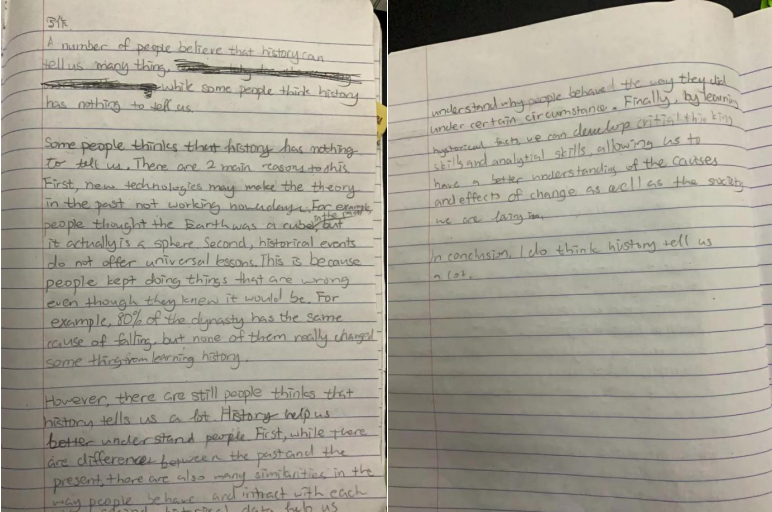 A number of people believe that history can
tell us many thing.
while some people think history
has nothing to tell us.
Some people thinks that history has nothing
to tell us. There are 2 main reasons to this
First, new technologies may make the theory
in the past not working nowadays. For example,
people thought the Earth was a cube in the past, but
it actually is a sphere. Second, historical events
do not offer universal lessons. This is because
people kept doing things that are wrong
even though they knew it would be. For
example, 80% of the dynasty has the same
cause of falling, but none of them really changed
some thing from learning history.
However, there are still people thinks that
history tells us a lot. History help us
better understand people First, while there
are differences between the past and the
present, there are also many similarities in the
way people behave and intract with each
data help us
understand why people behaved the way they did
under certain circumstance. Finally, by learning
we can develop critial thinking
skills and analytial skills, allowing us to
have a better understanding of the causes
and effects of change as well as the society
we are living in.
In conclusion, I do think history tell us
a lot.